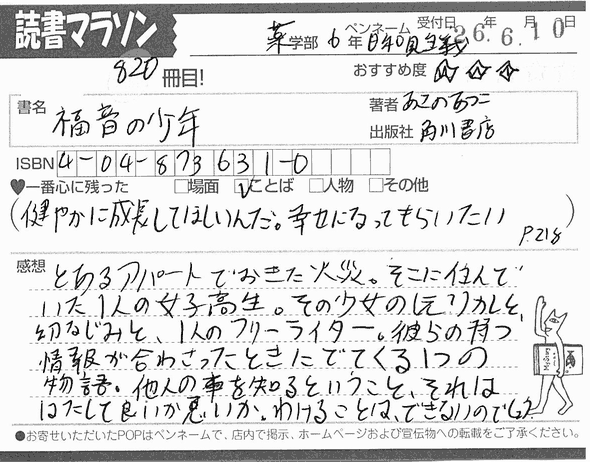 読書マラソン
薬学部 6年 ペンネーム 日和見主義 受付日 26年 6月 10日
820冊目!
おすすめ度 ☆☆☆
書名 福音の少年
著者 あさのあつこ
出版社 角川書店
ISBN 4-04-873631-0
♥一番心に残った □場面 ☑ことば □人物 □その他
(健やかに成長してほしいんだ。幸せになってもらいたい)
P.218
感想 とあるアパートでおきた火災。そこに住んで
いた1人の女子高生。その少女の元カレと、
幼なじみと、1人のフリーライター。彼らの持つ
情報が合わさったときにでてくる1つの
物語。他人の事を知るということ、それは
はたして良いか悪いか。わけることは、できないのでしょう
●お寄せいただいたPOPはペンネームで、店内で掲示、ホームページおよび宣伝物への転載をご了承ください。